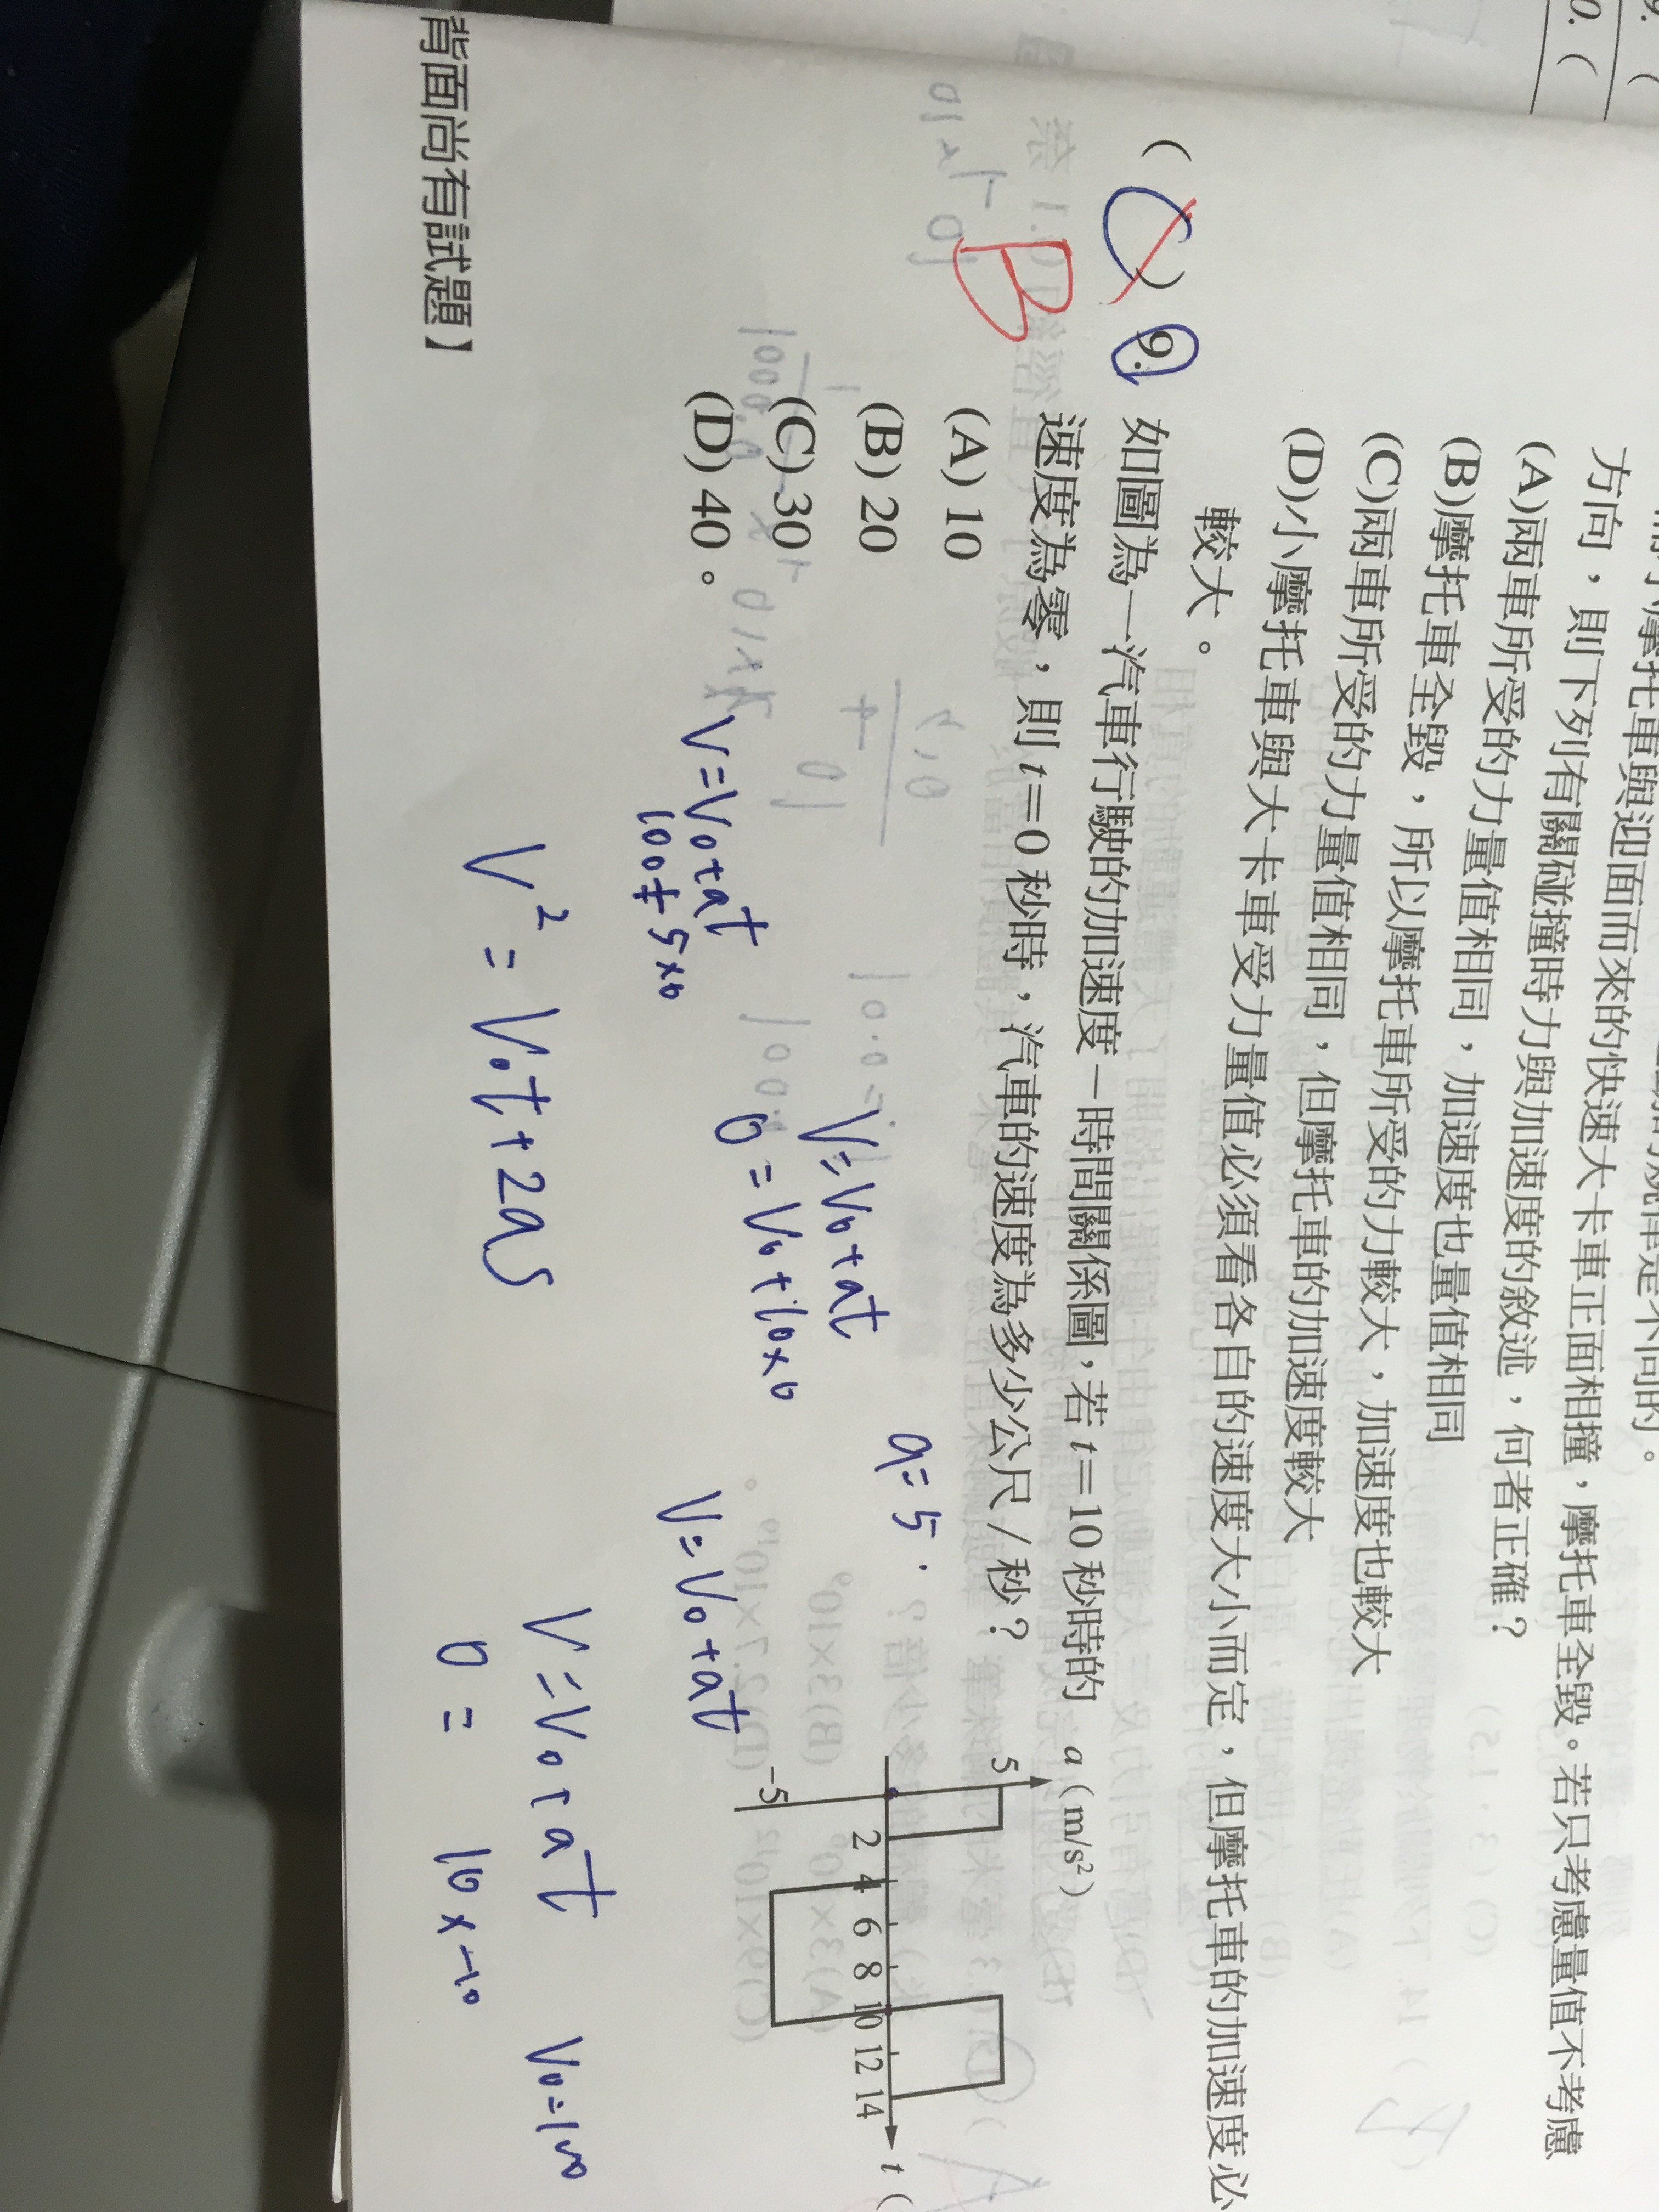 9. (
0. (
方向，則下列有關碰撞時力與加速度的敘述，何者正確？
(A)兩車所受的力量值相同，加速度也量值相同
(B)摩托車全毀，所以摩托車所受的力較大，加速度也較大
(C)兩車所受的力量值相同，但摩托車的加速度較大
(D)小摩托車與大卡車受力量值必須看各自的速度大小而定，但摩托車的加速度必
較大。
( C ) 9. 如圖為一汽車行駛的加速度－時間關係圖，若 t＝10 秒時的
B
速度為零，則 t＝0 秒時，汽車的速度為多少公尺／秒？
(A) 10
(B) 20
(C) 30
(D) 40。
a（m/s²）
5
-5
2 4 6 8 10 12 14
t（
a=5.
V=V₀+at
0=V₀+10×0
V=V₀+at
100+5×0
V=V₀+at
V²=V₀t+2as
V=V₀+at
V₀=100
背面尚有試題】